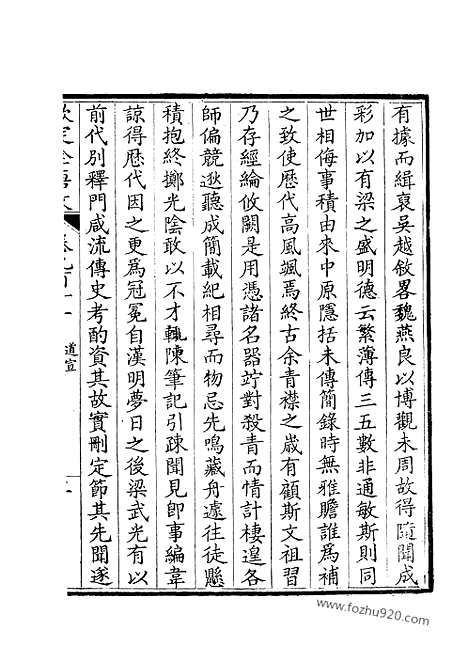 有據而緝裒吳越敘畧魏燕良以博觀未周故得隨聞成
彩加以有梁之盛明德云繁薄傳三五數非通敏斯則同
世相侮事積由來中原隱括未傳簡錄時無雅贍誰為補
之致使歷代高風颯焉終古余青襟之歲有顧斯文祖習
乃存經綸攸闕是用憑諸名器竚對殺青而情計棲遑各
師偏競逖聽成簡載紀相尋而物忌先鳴藏舟遽往徒懸
積抱終擲光陰敢以不才輒陳筆記引疎聞見卽事編韋
諒得歷代因之更為冠冕自漢明夢日之後梁武光有以
前代別釋門咸流傳史考酌資其故實刪定節其先聞遂
欽定全唐文
道宣
www.fozhu920.com